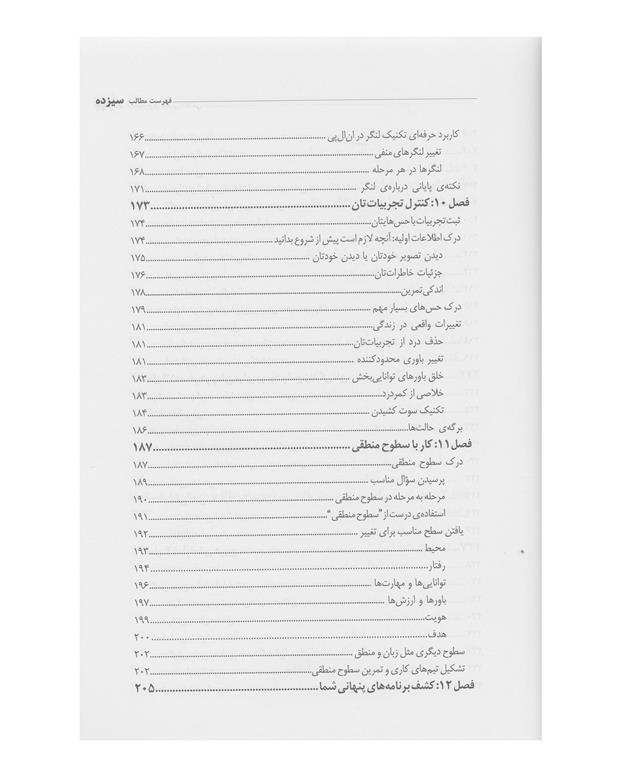 فهرست مطالب سیزده
کاربرد حرفه‌ای تکنیک لنگر در ان‌ال‌پی ۱۶۶
تغییر لنگرهای منفی ۱۶۷
لنگرها در هر مرحله ۱۶۸
نکته‌ی پایانی درباره‌ی لنگر ۱۷۱
فصل ۱۰: کنترل تجربیات‌تان ۱۷۳
ثبت تجربیات با حس‌هایتان ۱۷۴
درک اطلاعات اولیه: آنچه لازم است پیش از شروع بدانید ۱۷۴
دیدن تصویر خودتان یا دیدن خودتان ۱۷۵
جزئیات خاطرات‌تان ۱۷۶
اندکی تمرین ۱۷۸
درک حس‌های بسیار مهم ۱۷۹
تغییرات واقعی در زندگی ۱۸۱
حذف درد از تجربیات‌تان ۱۸۱
تغییر باوری محدودکننده ۱۸۱
خلق باورهای توانایی‌بخش ۱۸۳
خلاصی از کمردرد ۱۸۳
تکنیک سوت کشیدن ۱۸۴
برگه‌ی حالت‌ها ۱۸۶
فصل ۱۱: کار با سطوح منطقی ۱۸۷
درک سطوح منطقی ۱۸۷
پرسیدن سؤال مناسب ۱۸۹
مرحله به مرحله در سطوح منطقی ۱۹۰
استفاده‌ی درست از "سطوح منطقی" ۱۹۱
یافتن سطح مناسب برای تغییر ۱۹۲
محیط ۱۹۳
رفتار ۱۹۴
توانایی‌ها و مهارت‌ها ۱۹۶
باورها و ارزش‌ها ۱۹۷
هویت ۱۹۹
هدف ۲۰۰
سطوح دیگری مثل زبان و منطق ۲۰۲
تشکیل تیم‌های کاری و تمرین سطوح منطقی ۲۰۲
فصل ۱۲: کشف برنامه‌های پنهانی شما ۲۰۵